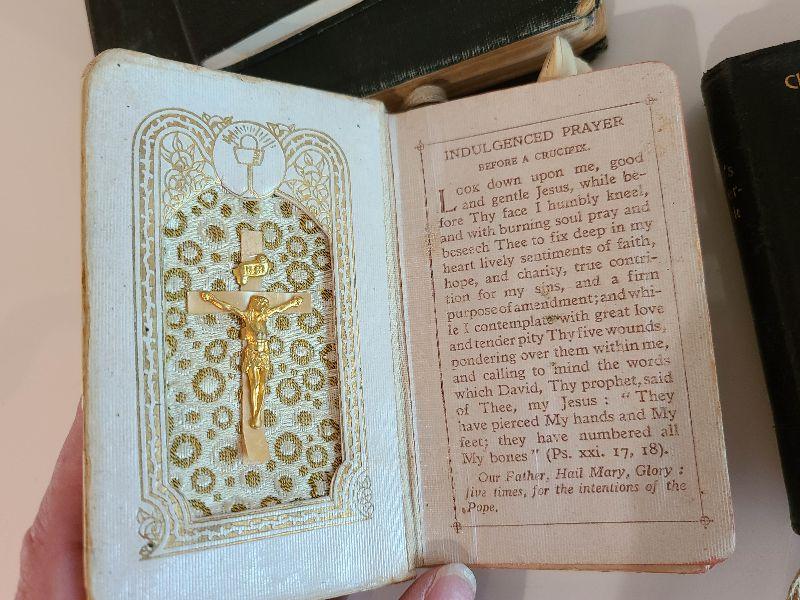 INDULGENCED PRAYER
BEFORE A CRUCIFIX.
LOOK down upon me, good
and gentle Jesus, while be-
fore Thy face I humbly kneel,
and with burning soul pray and
beseech Thee to fix deep in my
heart lively sentiments of faith,
hope, and charity, true contri-
tion for my sins, and a firm
purpose of amendment; and whi-
le I contemplate with great love
and tender pity Thy five wounds,
pondering over them within me,
and calling to mind the words
which David, Thy prophet, said
of Thee, my Jesus: "They
have pierced My hands and My
feet; they have numbered all
My bones" (Ps. xxi. 17, 18).
Our Father, Hail Mary, Glory:
five times, for the intentions of the
Pope.